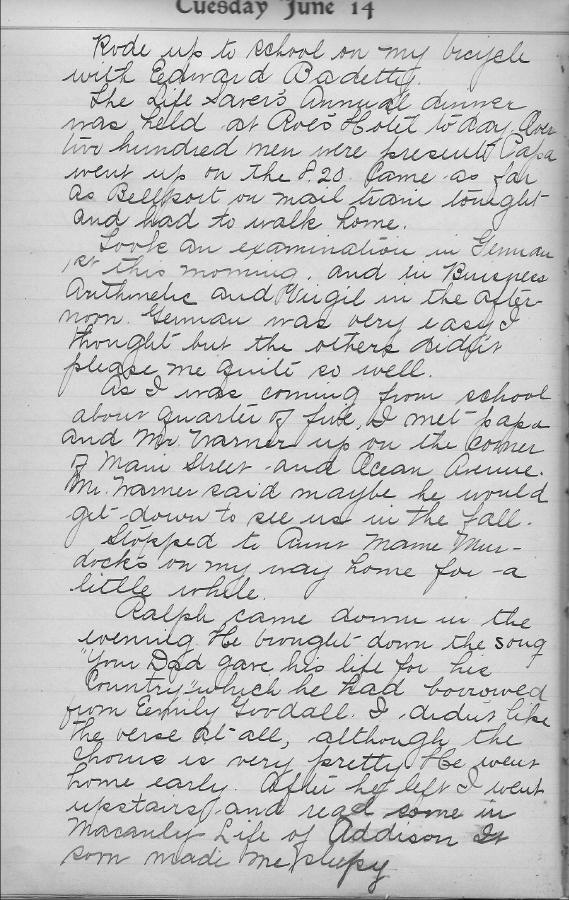 Tuesday June 14
Rode up to school on my bicycle
with Edward Badetty.
The Life Saver's Annual dinner
was held at Roe's Hotel to day. Over
two hundred men were present. Papa
went up on the 8.20. Came as far
as Bellport on mail train tonight
and had to walk home.
Took an examination in German
1st this morning, and in Business
Arithmetic and Virgil in the after-
noon. German was very easy I
thought but the others didn't
please me quite so well.
As I was coming from school
about quarter of five, I met papa
and Mr Warner up on the Corner
of Main Street and Ocean Avenue.
Mr. Warner said maybe he would
get down to see us in the fall.
Stopped to Aunt Mame Mur-
dock's on my way home for a
little while.
Ralph came down in the
evening. He brought down the song
"Your Dad gave his life for his
Country," which he had borrowed
from Emily Goodall. I didn't like
the verse at all, although the
chorus is very pretty. He went
home early. After he left I went
upstairs and read some in
Macauly Life of Addison It
soon made me sleepy